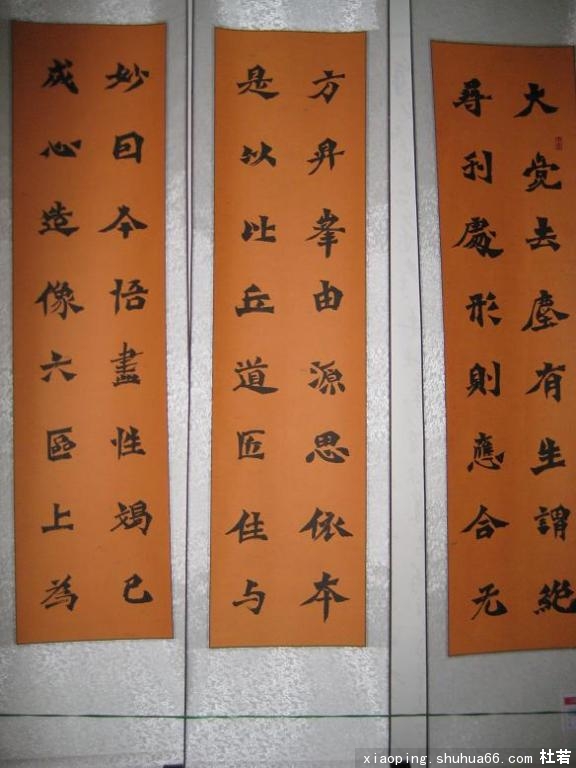 大覺去塵有生謂絕
尋利處形則應合无
方昇峯由源思依本
是以比丘道匠住与
妙囙本悟盡性竭已
成心造像六區上為
xiaoping.shuhua66.com 杜若